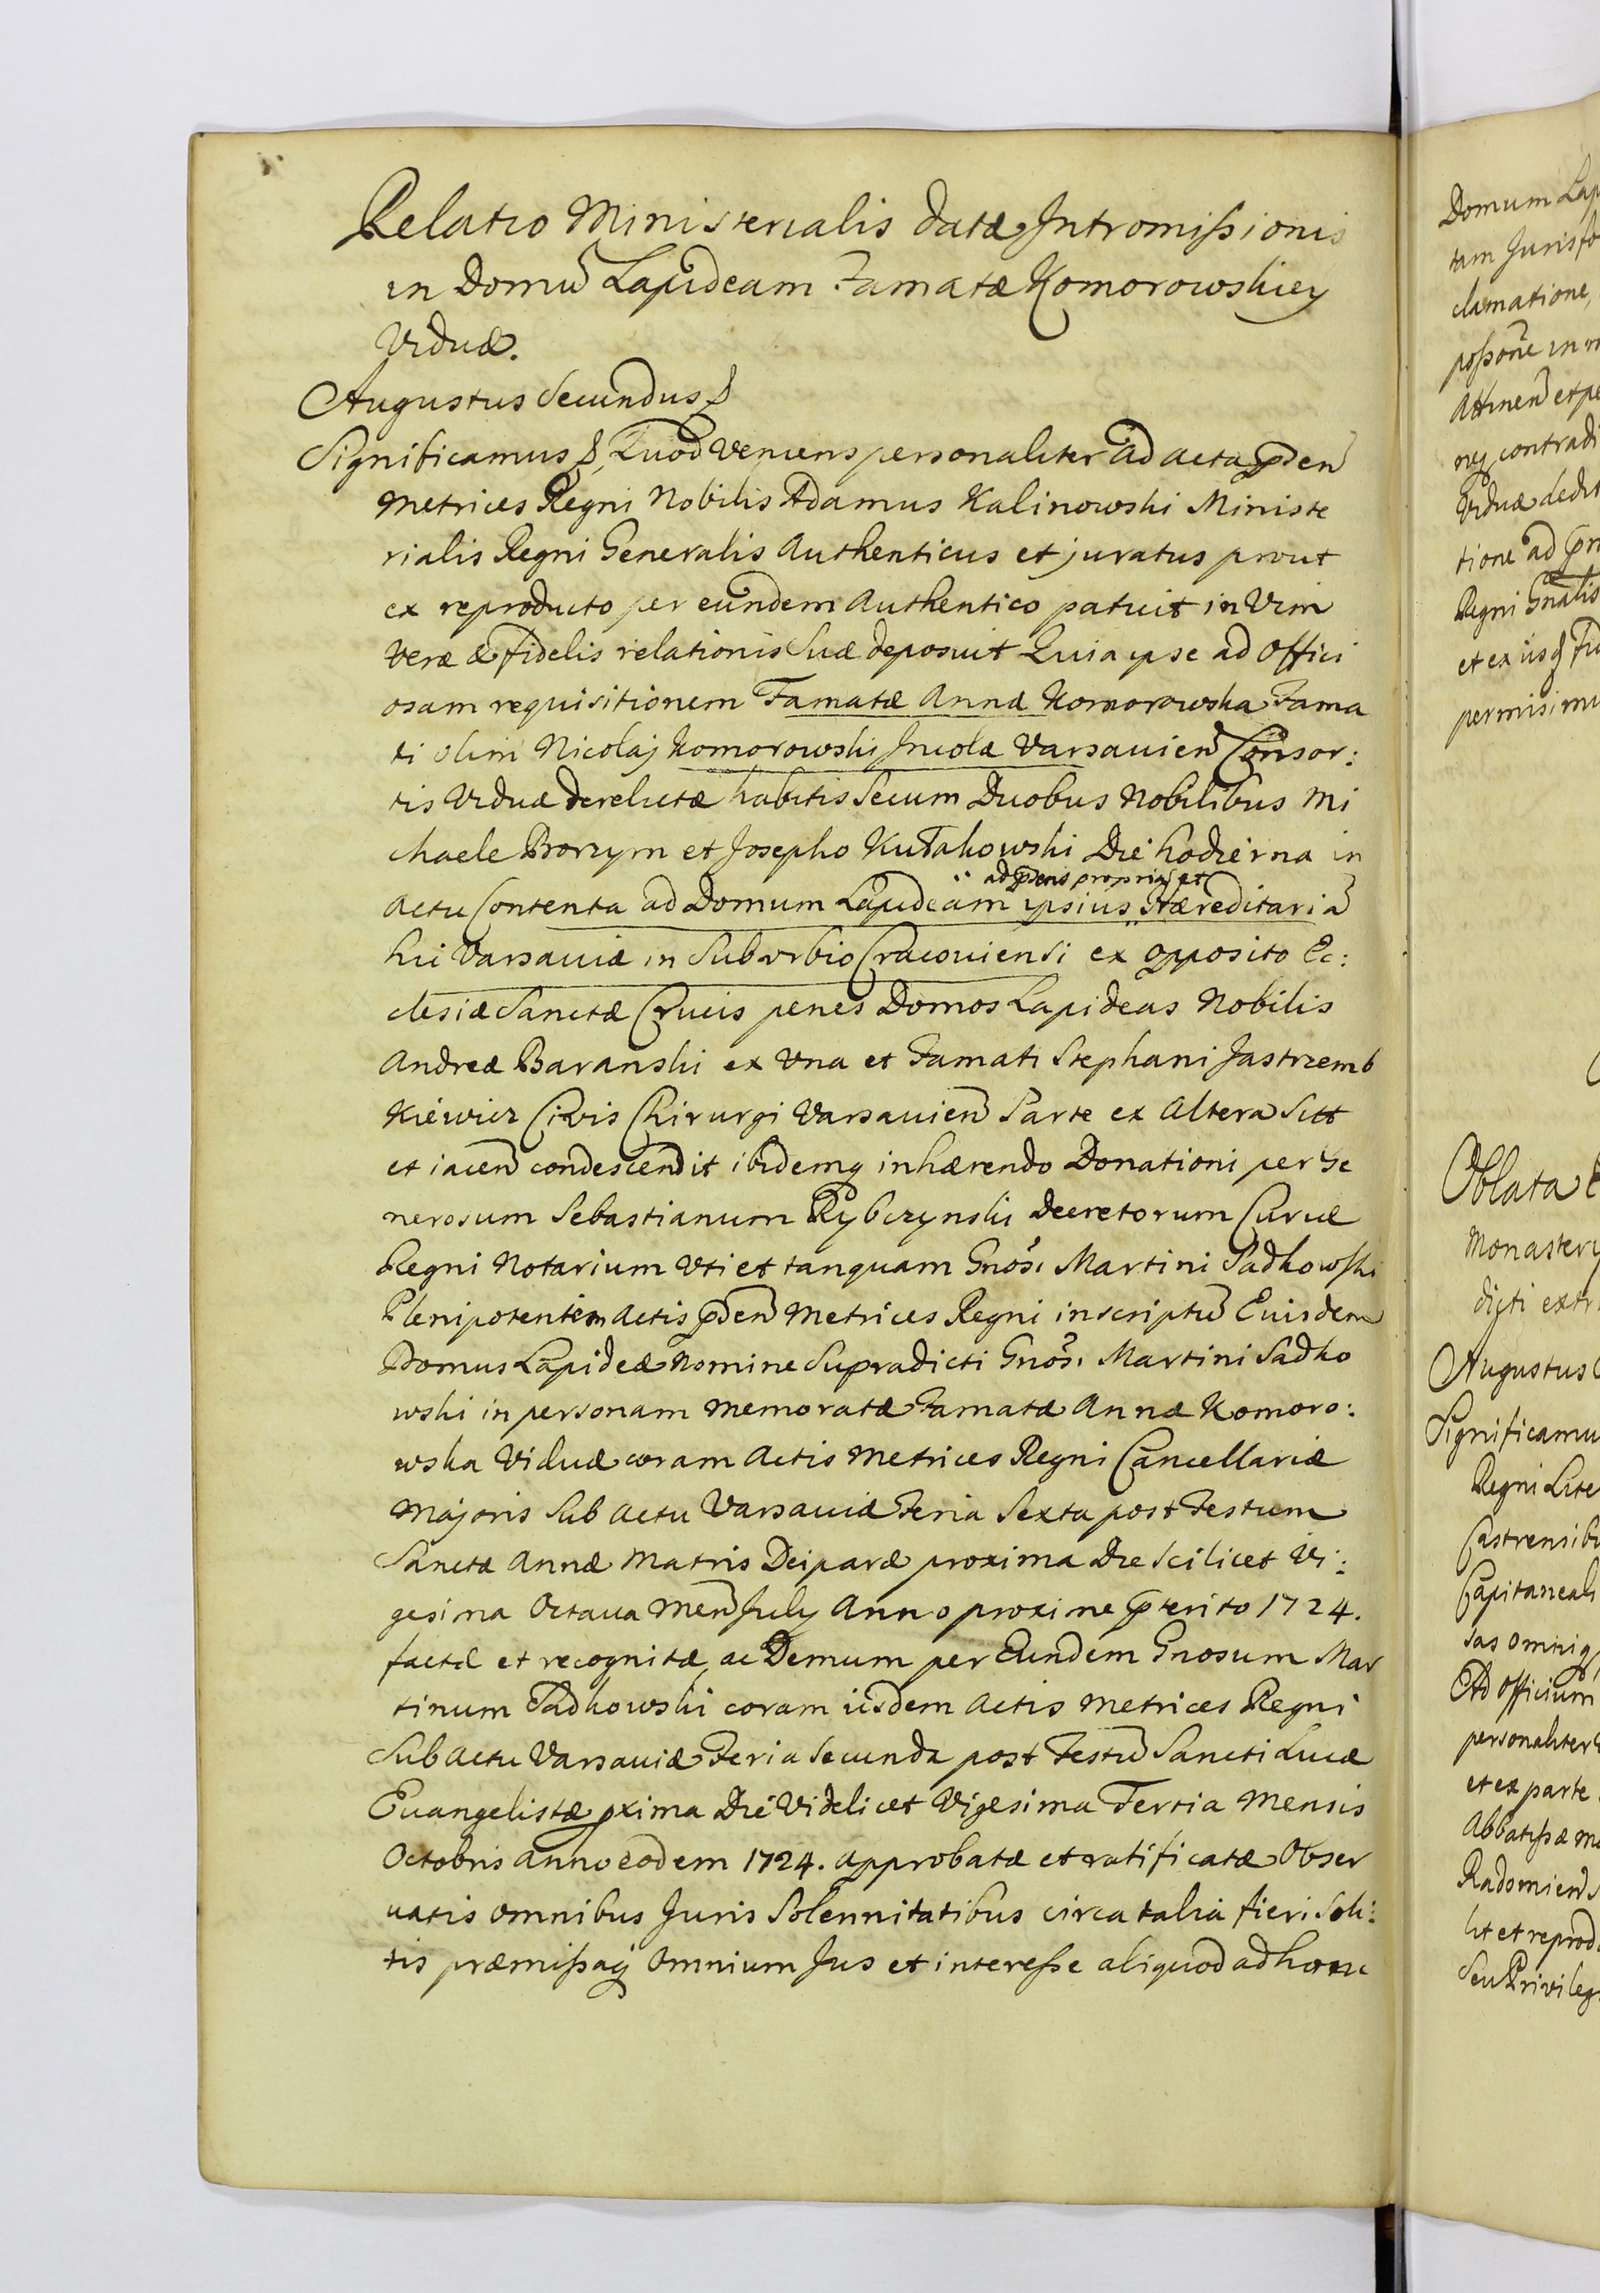 Relatio Ministerialis datæ Intromißionis
in Domū Lapideam Famatæ Komorowskiey
Viduæ.
Augustus Secundus &
Significamus &, Quod Veniens personaliter ad acta p̄den̄
Metrices Regni Nobilis Adamus Kalinowski Ministe
rialis Regni Generalis Authenticus et juratus prout
ex reproducto per eundem Authentico patuit in Vim
Veræ & fidelis relationis Suæ deposuit Quia ipse ad offici
osam requisitionem Famatæ Annæ Komorowska Fama
ti olim Nicolaj Komorowski Incolæ Varsauien̄ Consor:
tis Viduæ derelictæ habitis Secum Duobus Nobilibus Mi
chaele Borzym et Josepho Kutakowski Die hodierna in
ad p̄sens propriā et
actu Contenta ad Domum Lapideam ipsius Hæreditariā
hic Varsauiæ in Suburbio Cracouiensi ex opposito Ec:
clesiæ Sanctæ Crucis penes Domos Lapideas Nobilis
Andreæ Baranski ex Una et Famati Stephani Jastrzemb
Kiewicz Civis Chirurgi Varsauien̄ Parte ex Altera Sitt
et iacen̄ condescendit ibidemq inhærendo Donationi per Ge
nerosum Sebastianum Rybczynski Decretorum Curiæ
Regni Notarium Uti et tanquam Gnosi Martini Sadkowski
Plenipotentem actis p̄den̄ Metrices Regni inscriptū Eiusdem
Domus Lapideæ Nomine Supradicti Gnosi Martini Sadko
wski in personam memoratæ Famatæ Annæ Komoro:
wska Viduæ coram Actis Metrices Regni Cancellariæ
Majoris Sub actu Varsauiæ Feria Sexta post Festum
Sanctæ Annæ Matris Deiparæ proxima Die Scilicet Vi:
gesima Octaua Men̄ July Anno proxime p̄terito 1724.
factæ et recognitæ, ac Demum per Eundem Gnosum Mar
tinum Sadkowski coram iisdem Actis Metrices Regni
Sub actu Varsauiæ Feria Secunda post Festū Sancti Lucæ
Euangelistæ pxima Die Videlicet Vigesima Tertia Mensis
Octobris anno eodem 1724. approbatæ et ratificatæ Obser
uatis omnibus Juris Solennitatibus circa talia fieri Soli:
tis præmißaq Omnium Jus et interesse aliquod ad hanc
Domum Lap
tam Juris fo
clamatione,
poßōne in
Attinen̄ et pe
neq contradi
Viduæ dedit
tione ad
Regni Gnalis
et ex iisq
permisimu
Oblata
Monastery
dicti extr
Augustus
Significamu
Regni Lite
Castrensibu
Capitaneali
sas omniq
Ad officium
personaliter
et ex parte
Abbatißæ M
Radomien̄
lit et reprod
Seu Privileg